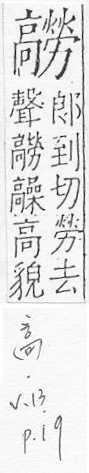 髝
郎到切勞去
聲髝髞高貌
高.
v.13
p.19